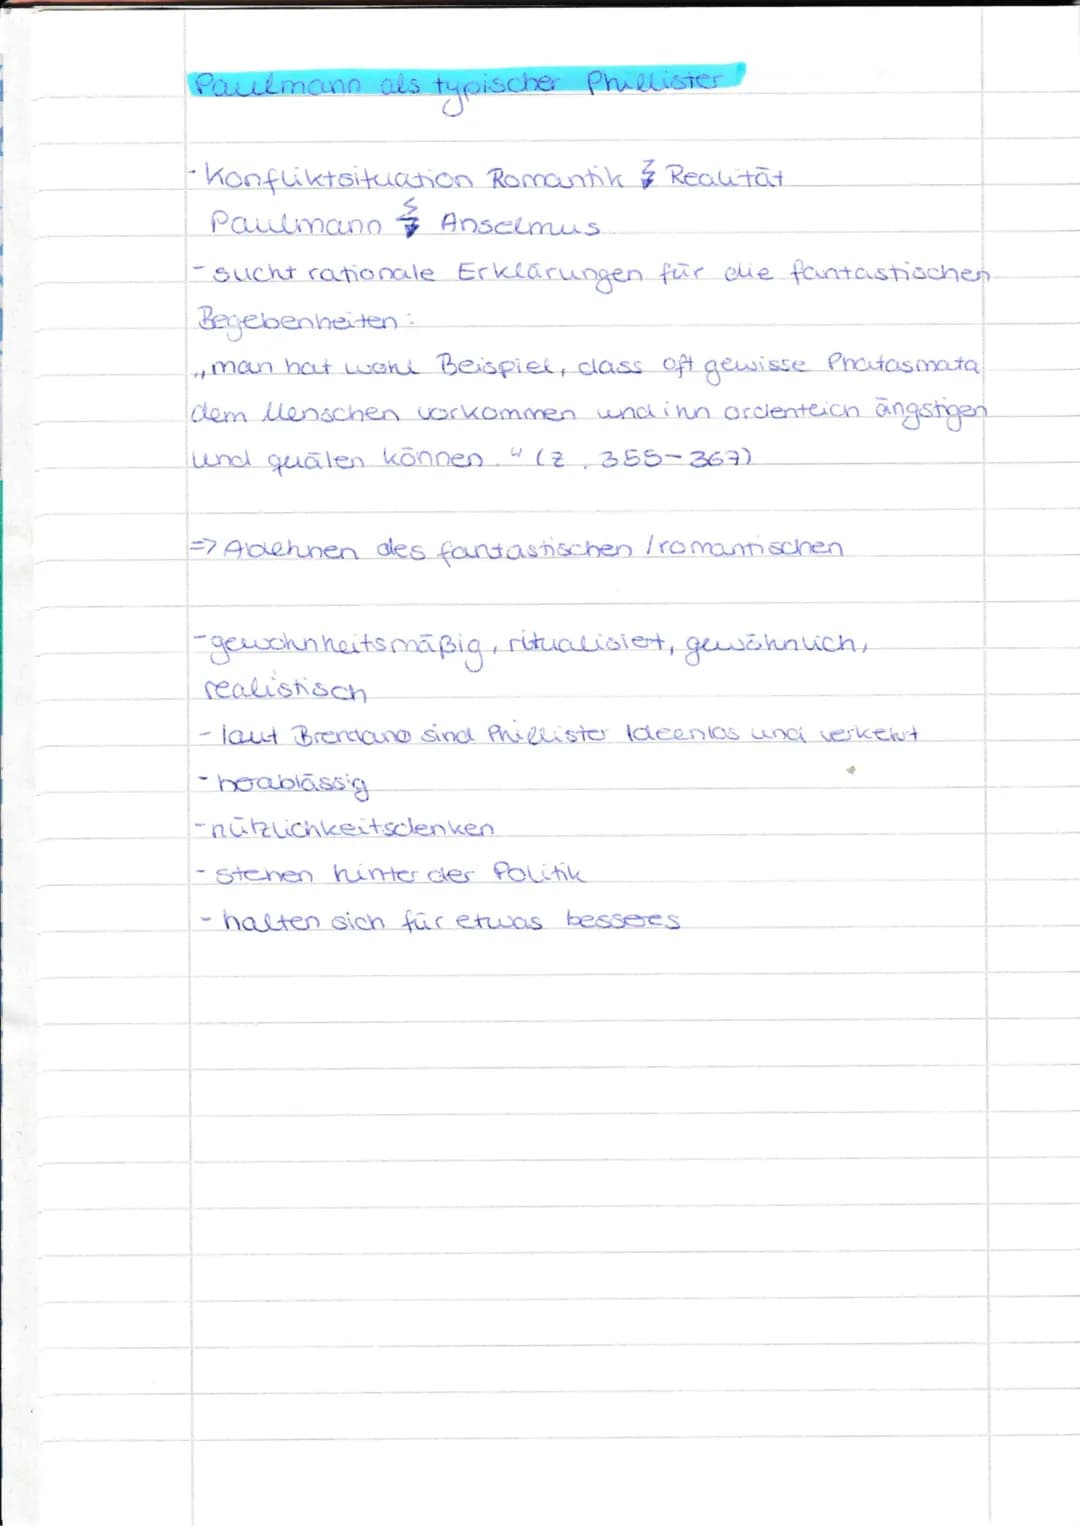 Paulmann als typischer Phillister
- Konfliktsituation Romantik ↯ Realität
Paulmann ↯ Anselmus
- sucht rationale Erklärungen für die fantastischen
Begebenheiten:
„man hat wohl Beispiel, dass oft gewisse Phatasmata
dem Menschen vorkommen und ihn ordentlich ängstigen
und quälen können." (Z. 355-367)
=> Ablehnen des fantastischen / romantischen
- gewohnheitsmäßig, ritualisiert, gewöhnlich,
realistisch
- laut Brentano sind Phillister Ideenlos und verkehrt
- herablässig
- nützlichkeitsdenken
- stehen hinter der Politik
- halten sich für etwas besseres